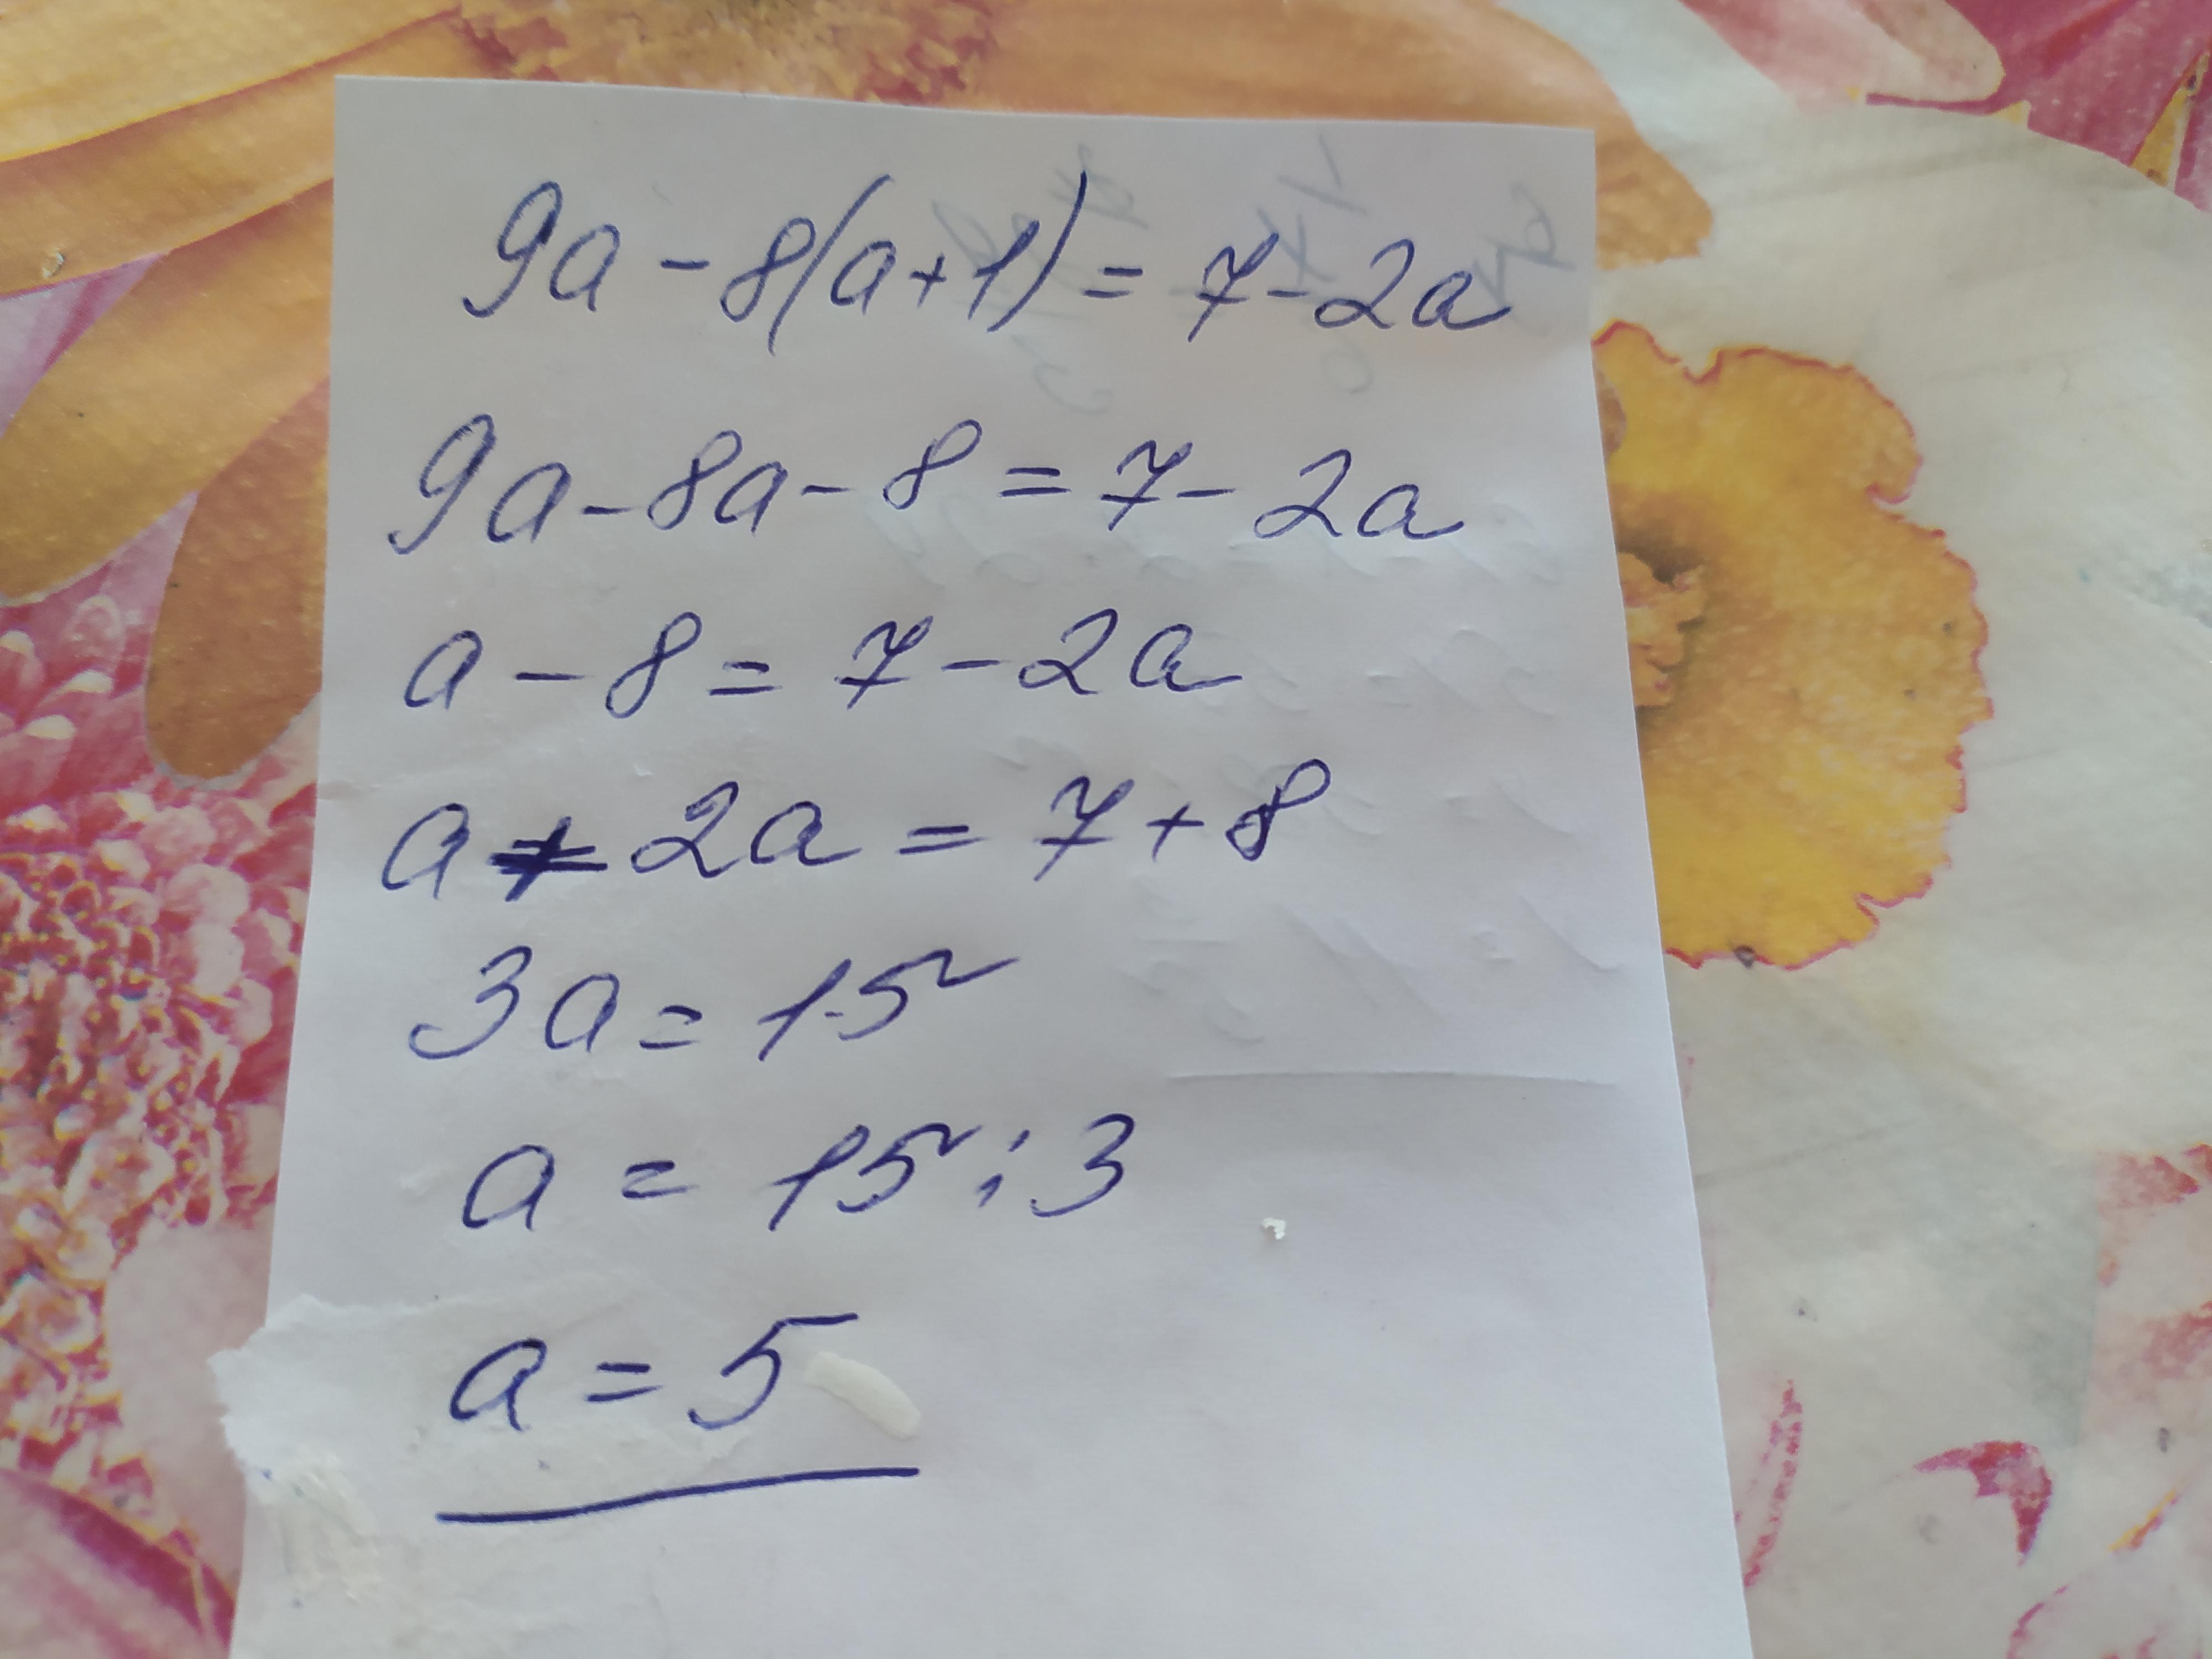 9a - 8(a+1) = 7 - 2a
9a - 8a - 8 = 7 - 2a
a - 8 = 7 - 2a
a + 2a = 7 + 8
3a = 15
a = 15 : 3
a = 5